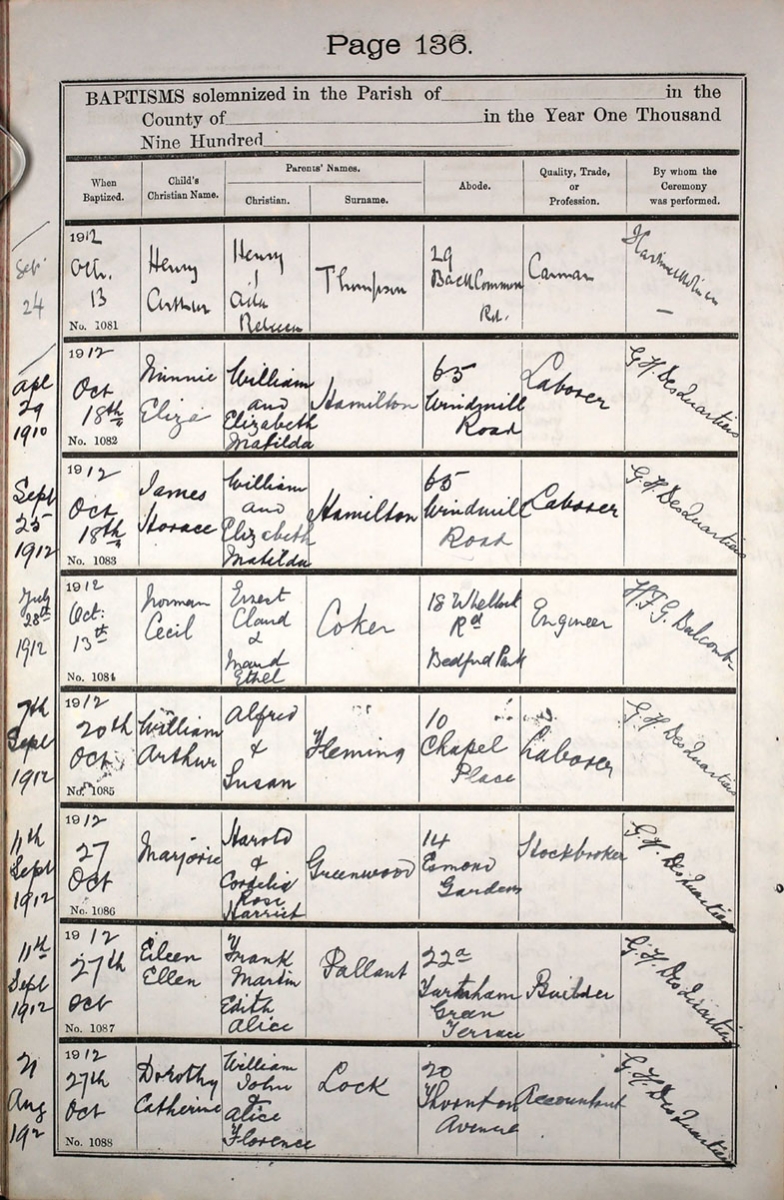 Page 136.
BAPTISMS solemnized in the Parish of in the
County of in the Year One Thousand
Nine Hundred
When Baptized.
Child's Christian Name.
Parents' Names.
Christian.
Surname.
Abode.
Quality, Trade, or Profession.
By whom the Ceremony was performed.
Sep
24
1912
Oct.
13
No. 1081
Henry
Arthur
Henry
Ada
Rebecca
Thompson
29
Back Common
Rd.
Carman
Apl
29
1910
1912
Oct
18th
No. 1082
Minnie
Eliza
William
and
Elizabeth
Matilda
Hamilton
65
Windmill
Road
Laborer
G. H. DesQuartiers
Sept
25
1912
1912
Oct
18th
No. 1083
James
Horace
William
and
Elizabeth
Matilda
Hamilton
65
Windmill
Road
Laborer
G. H. DesQuartiers
July
28th
1912
1912
Oct:
13th
No. 1084
Norman
Cecil
Ernest
Claud
&
Maud
Ethel
Coker
18 Whellock
Rd
Bedford Park
Engineer
H. F. G. Balcomb
7th
Sept
1912
1912
20th
Oct
No. 1085
William
Arthur
Alfred
&
Susan
Fleming
10
Chapel
Place
Laborer
G. H. DesQuartiers
11th
Sept
1912
1912
27
Oct
No. 1086
Marjorie
Harold
&
Cordelia
Rose
Harriet
Greenwood
14
Esmond
Gardens
Stockbroker
G. H. DesQuartiers
11th
Sept
1912
1912
27th
Oct
No. 1087
Eileen
Ellen
Frank
Martin
Edith
Alice
Pallant
22a
Turnham
Green
Terrace
Builder
G. H. DesQuartiers
21
Aug
192
1912
27th
Oct
No. 1088
Dorothy
Catherine
William
John
&
Alice
Florence
Lock
20
Thornton
Avenue
Accountant
G. H. DesQuartiers